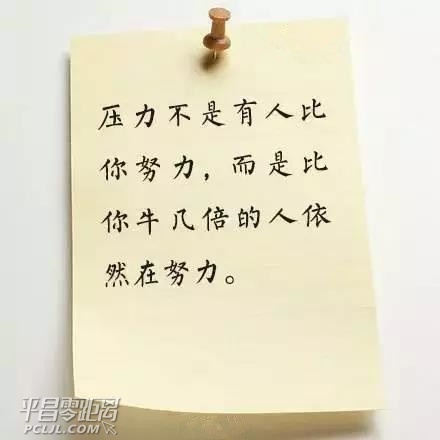 压力不是有人比
你努力，而是比
你牛几倍的人依
然在努力。
平昌零距离
PCLJL.COM